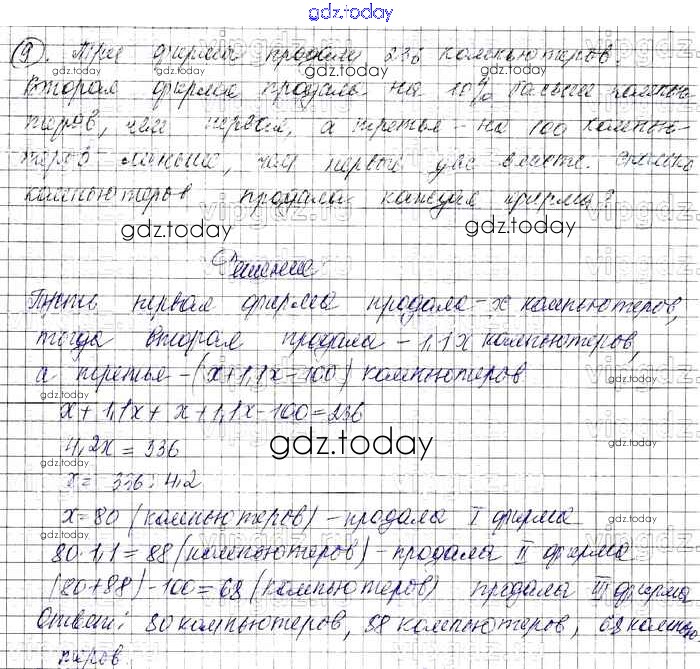 gdz.today
9). Три фирма продали 236 компьютеров.
Вторая фирма продала на 10% больше компью-
теров, чем первая, а третья - на 100 компью-
теров меньше, чем первые две вместе. Сколько
компьютеров продала каждая фирма?
gdz.today
Решение:
Пусть первая фирма продала - x компьютеров,
тогда вторая продала - 1,1x компьютеров,
а третья - (x+1,1x-100) компьютеров
x+1,1x+x+1,1x-100=236
4,2x=336
gdz.today
x= 336:4,2
x=80 (компьютеров) - продала I фирма
80·1,1=88 (компьютеров) - продала II фирма
(80+88)-100=68 (компьютеров) продала III фирма
Ответ: 80 компьютеров, 88 компьютеров, 68 компью-
теров.